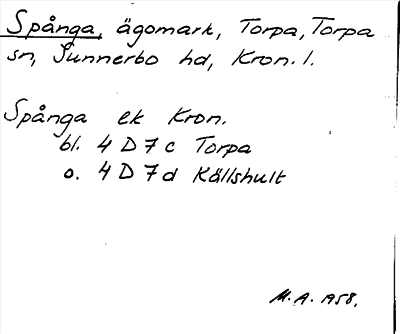 Spånga, ägomark, Torpa, Torpa
sn, Sunnerbo hd, Kron. l.
Spånga ek Kron.
bl. 4 D 7 c Torpa
o. 4 D 7 d Källshult
M. A. 1958.